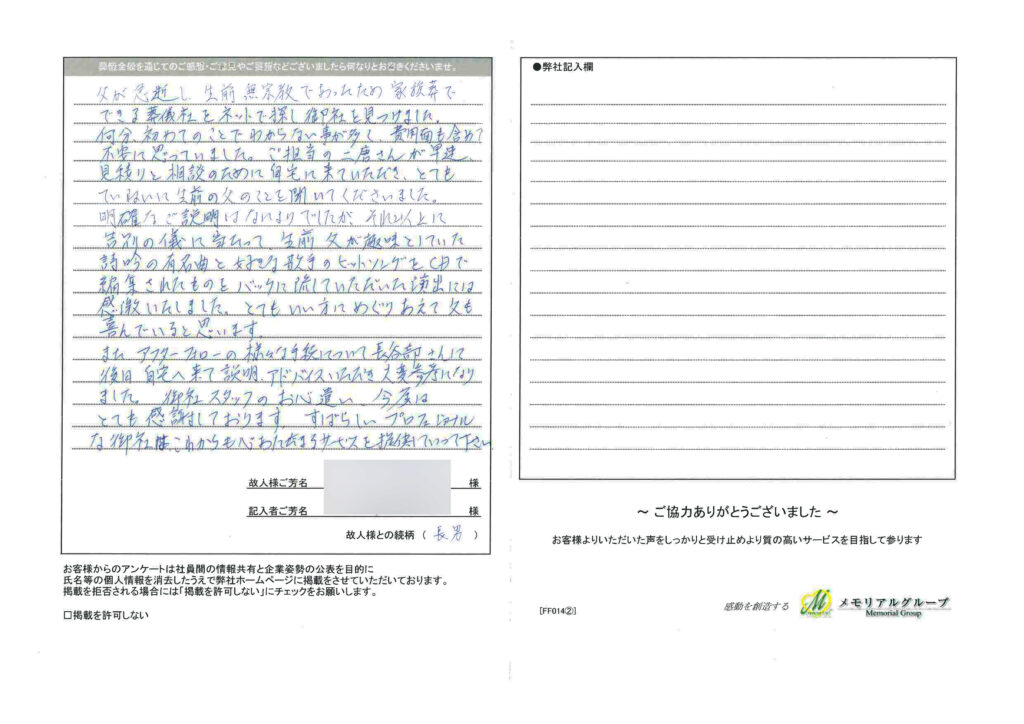 葬儀全般を通じてのご感想・ご意見やご要望などございましたら何なりとお書きくださいませ。
父が急逝し、生前 無宗教であったため 家族葬で
できる葬儀社をネットで探し御社を見つけました。
何分 初めてのことでわからない事が多く、費用面も含めて
不安に思っていました。ご担当の二唐さんが早速
見積りと相談のために自宅に来ていただき、とても
ていねいに生前の父のことを聞いてくださいました。
明確なご説明はないよりでしたが、それ以上に
告別の儀に当たって、生前 父が趣味としていた
詩吟の有名曲と好きな歌手のヒットソングをCDで
編集されたものをバックに流していただいた演出には
感激いたしました。とてもいい方にめぐりあえて父も
喜んでいると思います。
また アフターフォローの様々な手続について長谷部さんに
後日 自宅へ来て説明、アドバイスいただき大変参考になり
ました。御社スタッフのお心遣い、今度は
とても感謝しております。すばらしいプロフェショナル
な御社は、これからも心あたたまるサービスを提供していって下さい
故人様ご芳名 様
記入者ご芳名 様
故人様との続柄 ( 長男 )
お客様からのアンケートは社員間の情報共有と企業姿勢の公表を目的に
氏名等の個人情報を消去したうえで弊社ホームページに掲載をさせていただいております。
掲載を拒否される場合には「掲載を許可しない」にチェックをお願いします。
□掲載を許可しない
●弊社記入欄
～ ご協力ありがとうございました ～
お客様よりいただいた声をしっかりと受け止めより質の高いサービスを目指して参ります
[FF014②]
感動を創造する
メモリアルグループ
Memorial Group